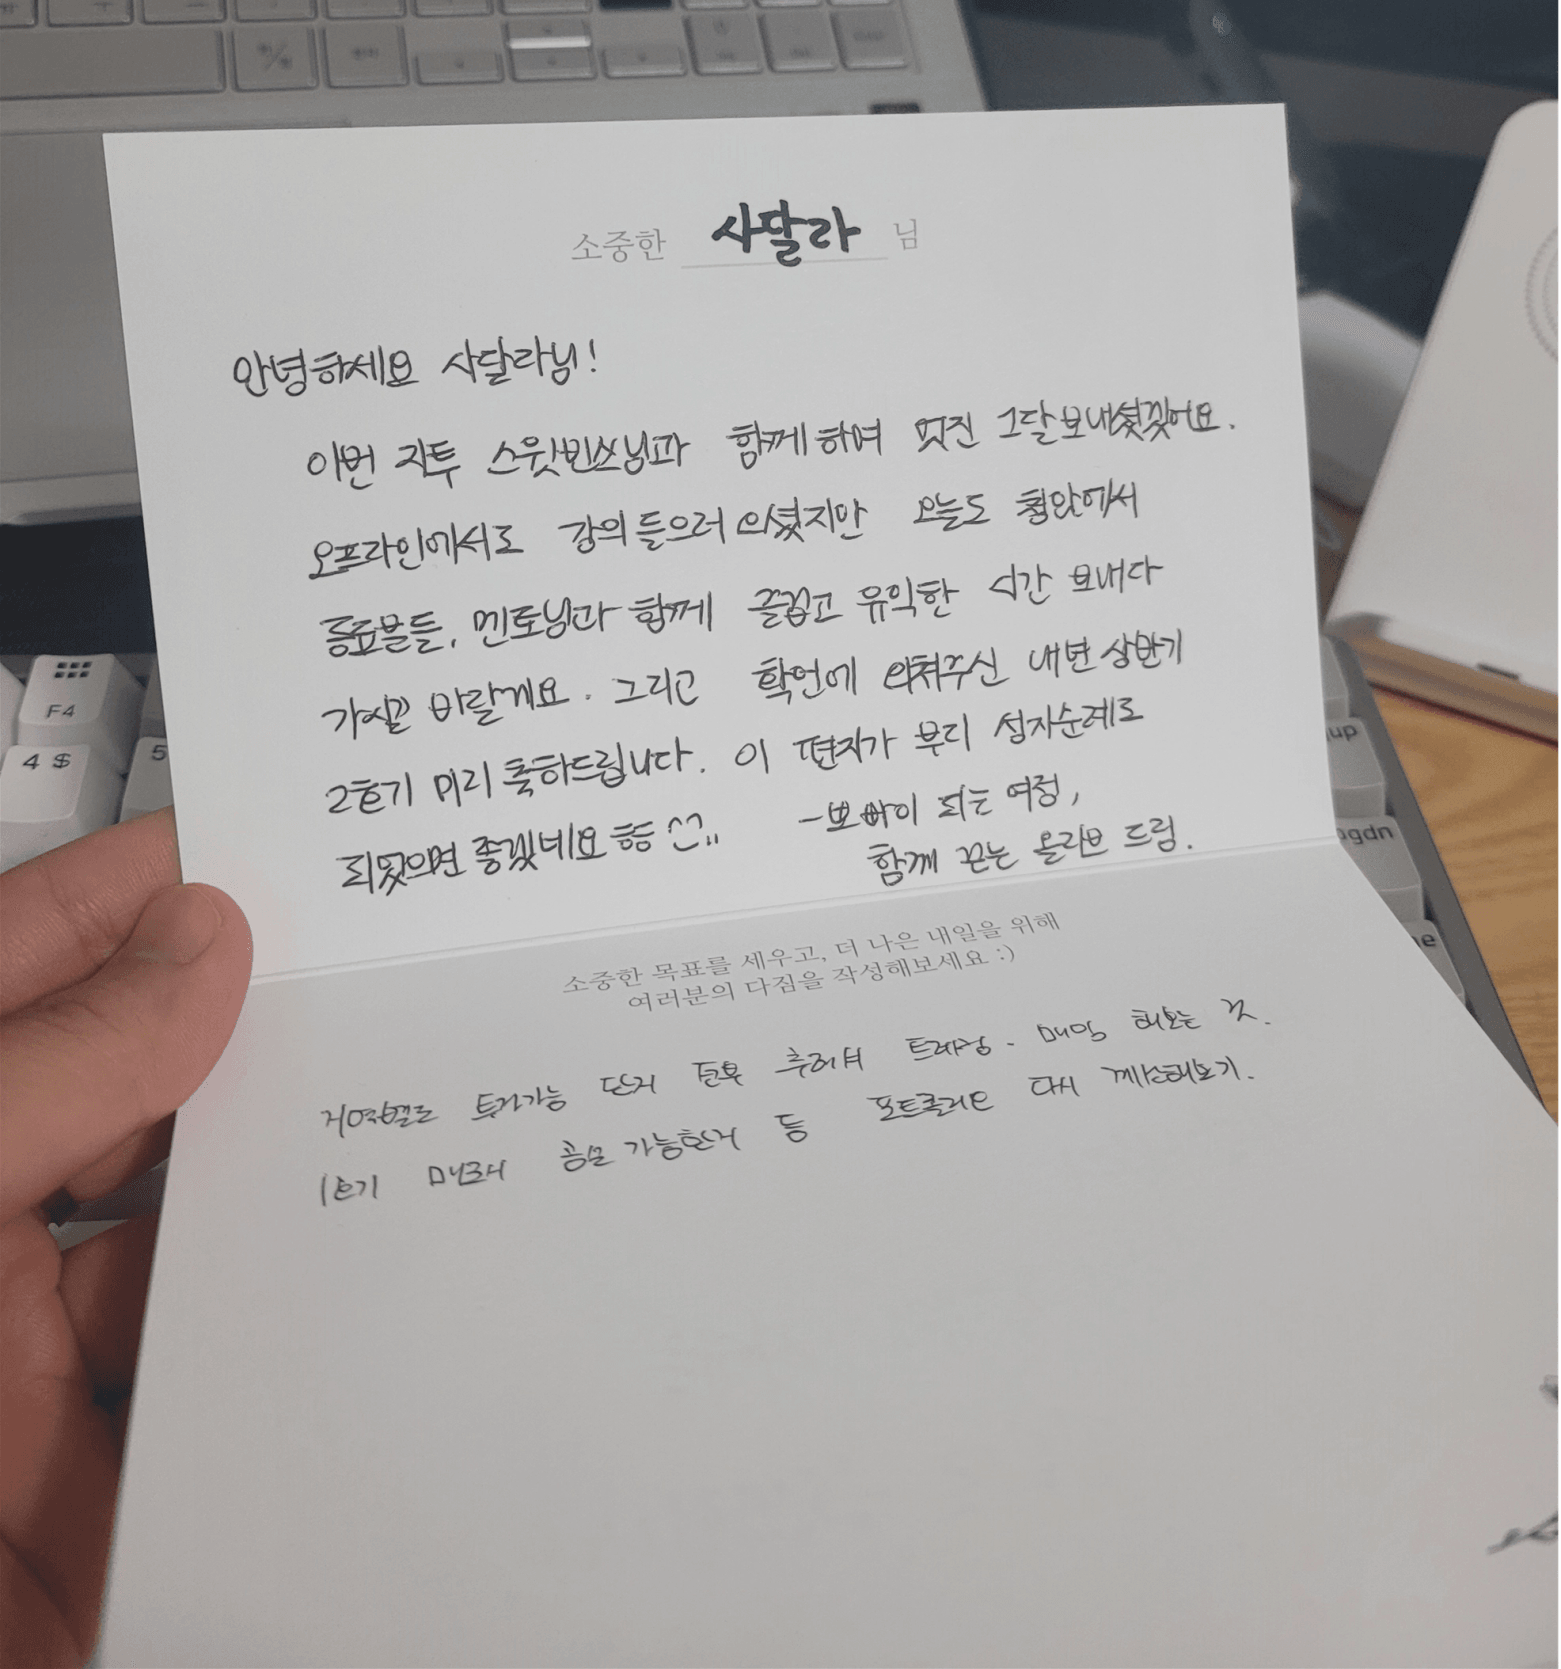 소중한 사달라 님
안녕하세요 사달라님!
이번 지투 스윗빈쓰님과 함께하여 멋진 그달보내셨겠어요.
오프라인에서도 강의 들으러 오셨지만 오늘도 현안에서
동료분들, 멘토님과 함께 즐겁고 유익한 시간 보내다
가시길 바랄게요. 그리고 확언에 외쳐주신 내년 상반기
2호기 미리 축하드립니다. 이 편지가 부디 성지순례로
되었으면 좋겠네요 ㅎㅎ ^^;;
-뽀빠이 되는 여정,
함께 걷는 올리브 드림.
소중한 목표를 세우고, 더 나은 내일을 위해
여러분의 다짐을 작성해보세요 :)
지역별로 투자가능 단지 전부 추려서 트래킹. 매일 해오는 것.
1호기 매도시 가능한거 등 포트폴리오 다시 계산해보기.
F4
4 $
5
up
pgdn